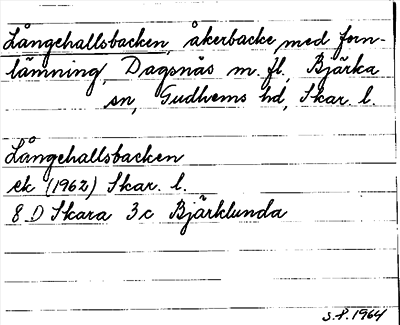 Långehallsbacken, åkerbacke med forn-
lämning, Dagsnäs m. fl., Bjärka
sn, Gudhems hd, Skar. l.
Långehallsbacken
ek (1962) Skar. l.
8 D Skara 3c Bjärklunda
S.P. 1964